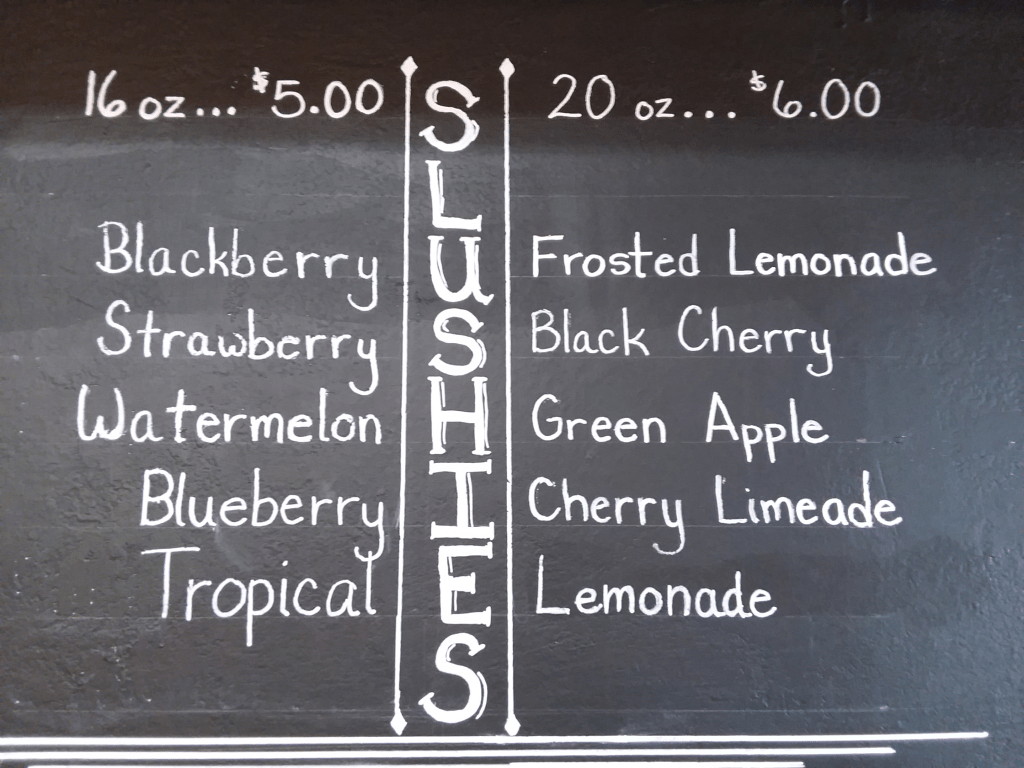 16 oz... $5.00
Blackberry
Strawberry
Watermelon
Blueberry
Tropical
SLUSHIES
20 oz... $6.00
Frosted Lemonade
Black Cherry
Green Apple
Cherry Limeade
Lemonade